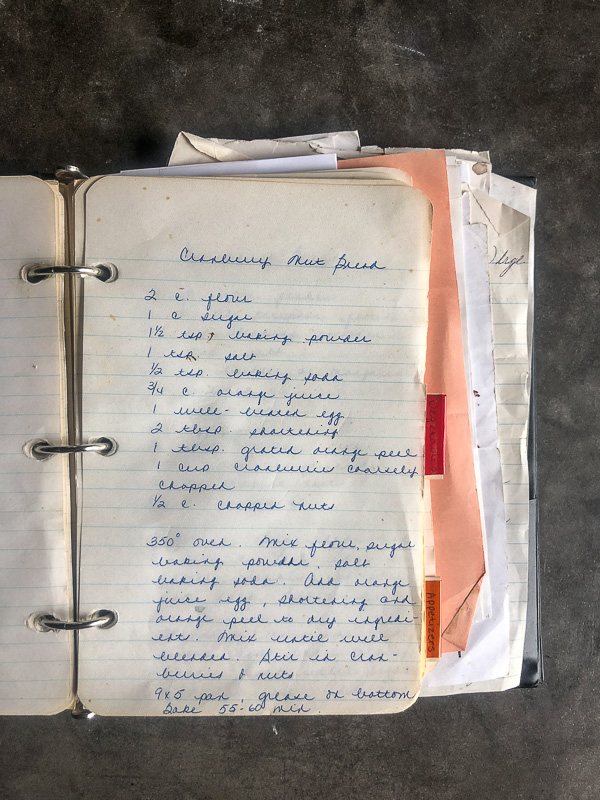 Cranberry Nut Bread
2 c. flour
1 c sugar
1½ tsp. baking powder
1 tsp. salt
½ tsp. baking soda
¾ c. orange juice
1 well-beaten egg
2 tbsp. shortening
1 tbsp. grated orange peel
1 cup cranberries coarsely
chopped
½ c. chopped nuts
350° oven. Mix flour, sugar
baking powder, salt
baking soda. Add orange
juice egg, shortening and
orange peel to dry ingredi-
ent. Mix until well
blended. Stir in cran-
berries & nuts
9x5 pan, grease on bottom
Bake 55-60 min.
Appetizers